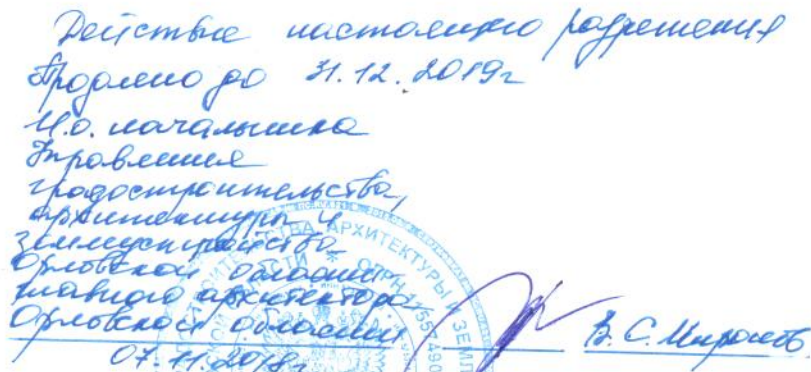 Действие настоящего разрешения
Продлено до 31.12.2019г
И.о. начальника
Управления
градостроительства,
архитектуры и
землеустройства
Орловской области
главного архитектора
Орловской области
07.11.2018г
АРХИТЕКТУРЫ И ЗЕМЛ
ОБЛАСТИ * ОГРН